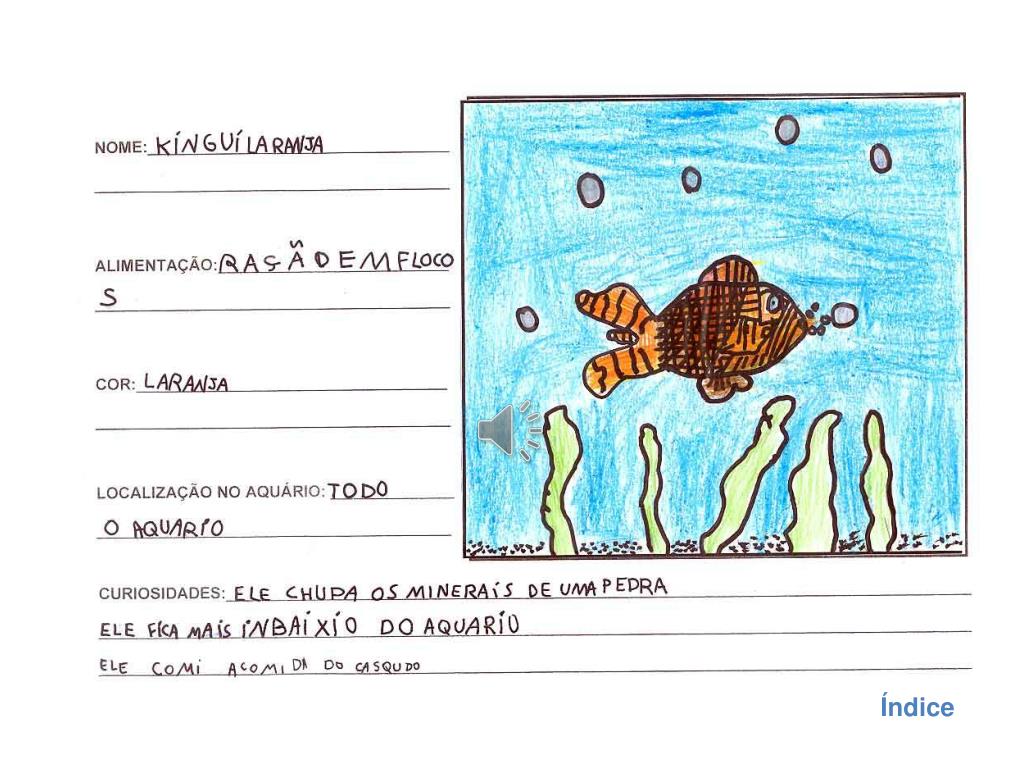 NOME: KINGUÍ LARANJA
ALIMENTAÇÃO: RAÇÃO EM FLOCO
S
COR: LARANJA
LOCALIZAÇÃO NO AQUÁRIO: TODO
O AQUARIO
CURIOSIDADES: ELE CHUPA OS MINERAIS DE UMA PEDRA
ELE FICA MAIS INBAIXIO DO AQUARIO
ELE COMI A COMIDA DO CASQUDO
Índice